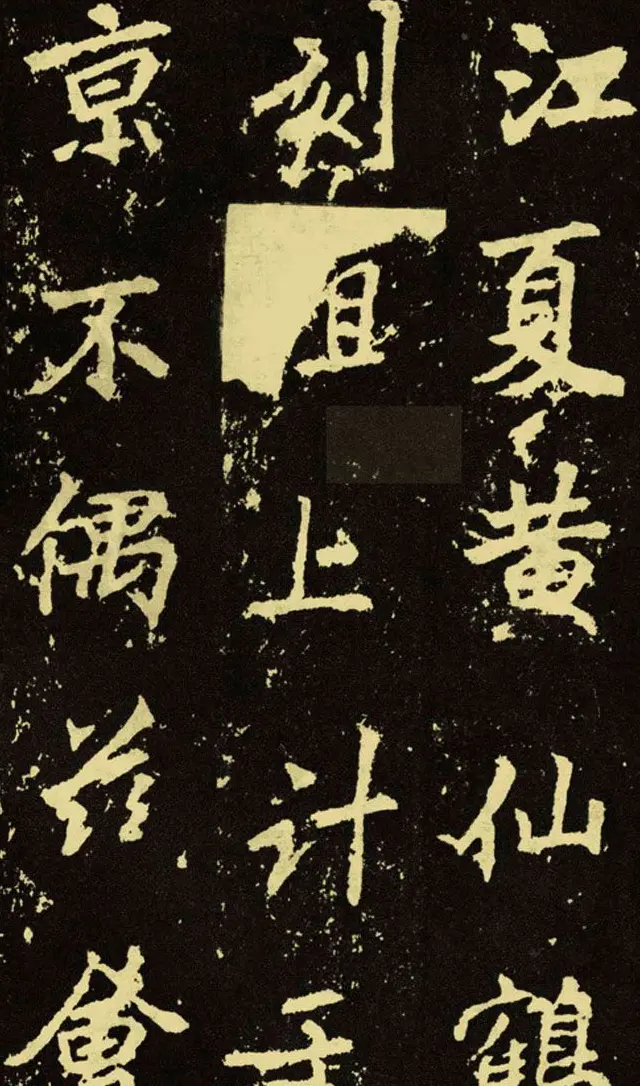 江夏黄仙鶴
刻且上計于
京不偶兹會